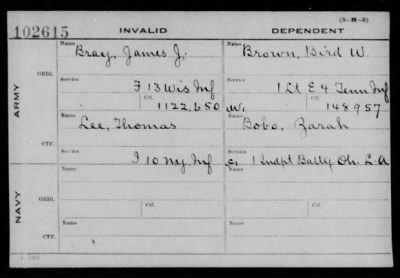 (3-M-3)
102615 INVALID DEPENDENT
Name Bray, James J. Name Brown, Bird W.
ORIG.
Service F 13 Wis Inf Service 1 Lt E 4 Tenn Inf
ARMY
Ctf. 1122,650 Ctf. W. 148957
Name Lee, Thomas Name Bobo, Zarah
CTF.
Service I 10 NY. Inf Service C, 1 Indpt Batty Oh. L.A
Name Name
ORIG.
NAVY
Ctf. Ctf.
Name Name
CTF.